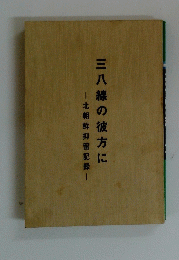 三八線の彼方に
―北朝鮮抑留記録―